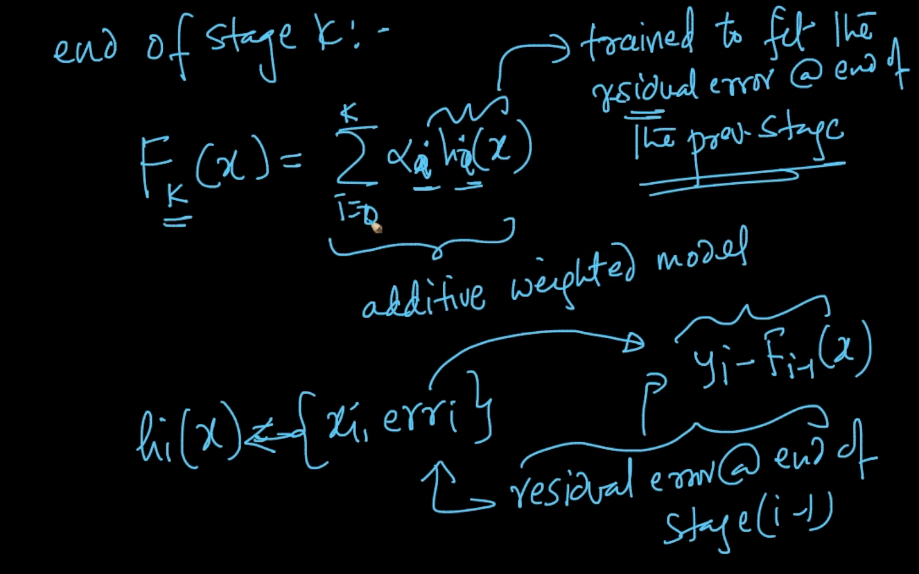 end of stage K:-
trained to fit the
residual error @ end of
the prev. stage
F_K(x) = Σ_{i=0}^{K} α_i h_i(x)
additive weighted model
h_i(x) ← {x_i, err_i}
y_i - F_{i-1}(x)
residual error @ end of
stage (i-1)